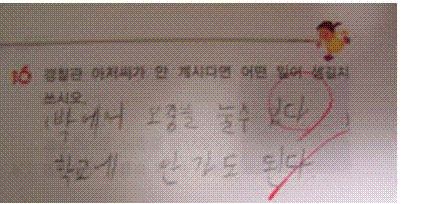 16 경찰관 아저씨가 안 계시다면 어떤 일이 생길지
쓰시오.
(밖에서 오줌을 눌수 있다)
학교에 안 가도 된다